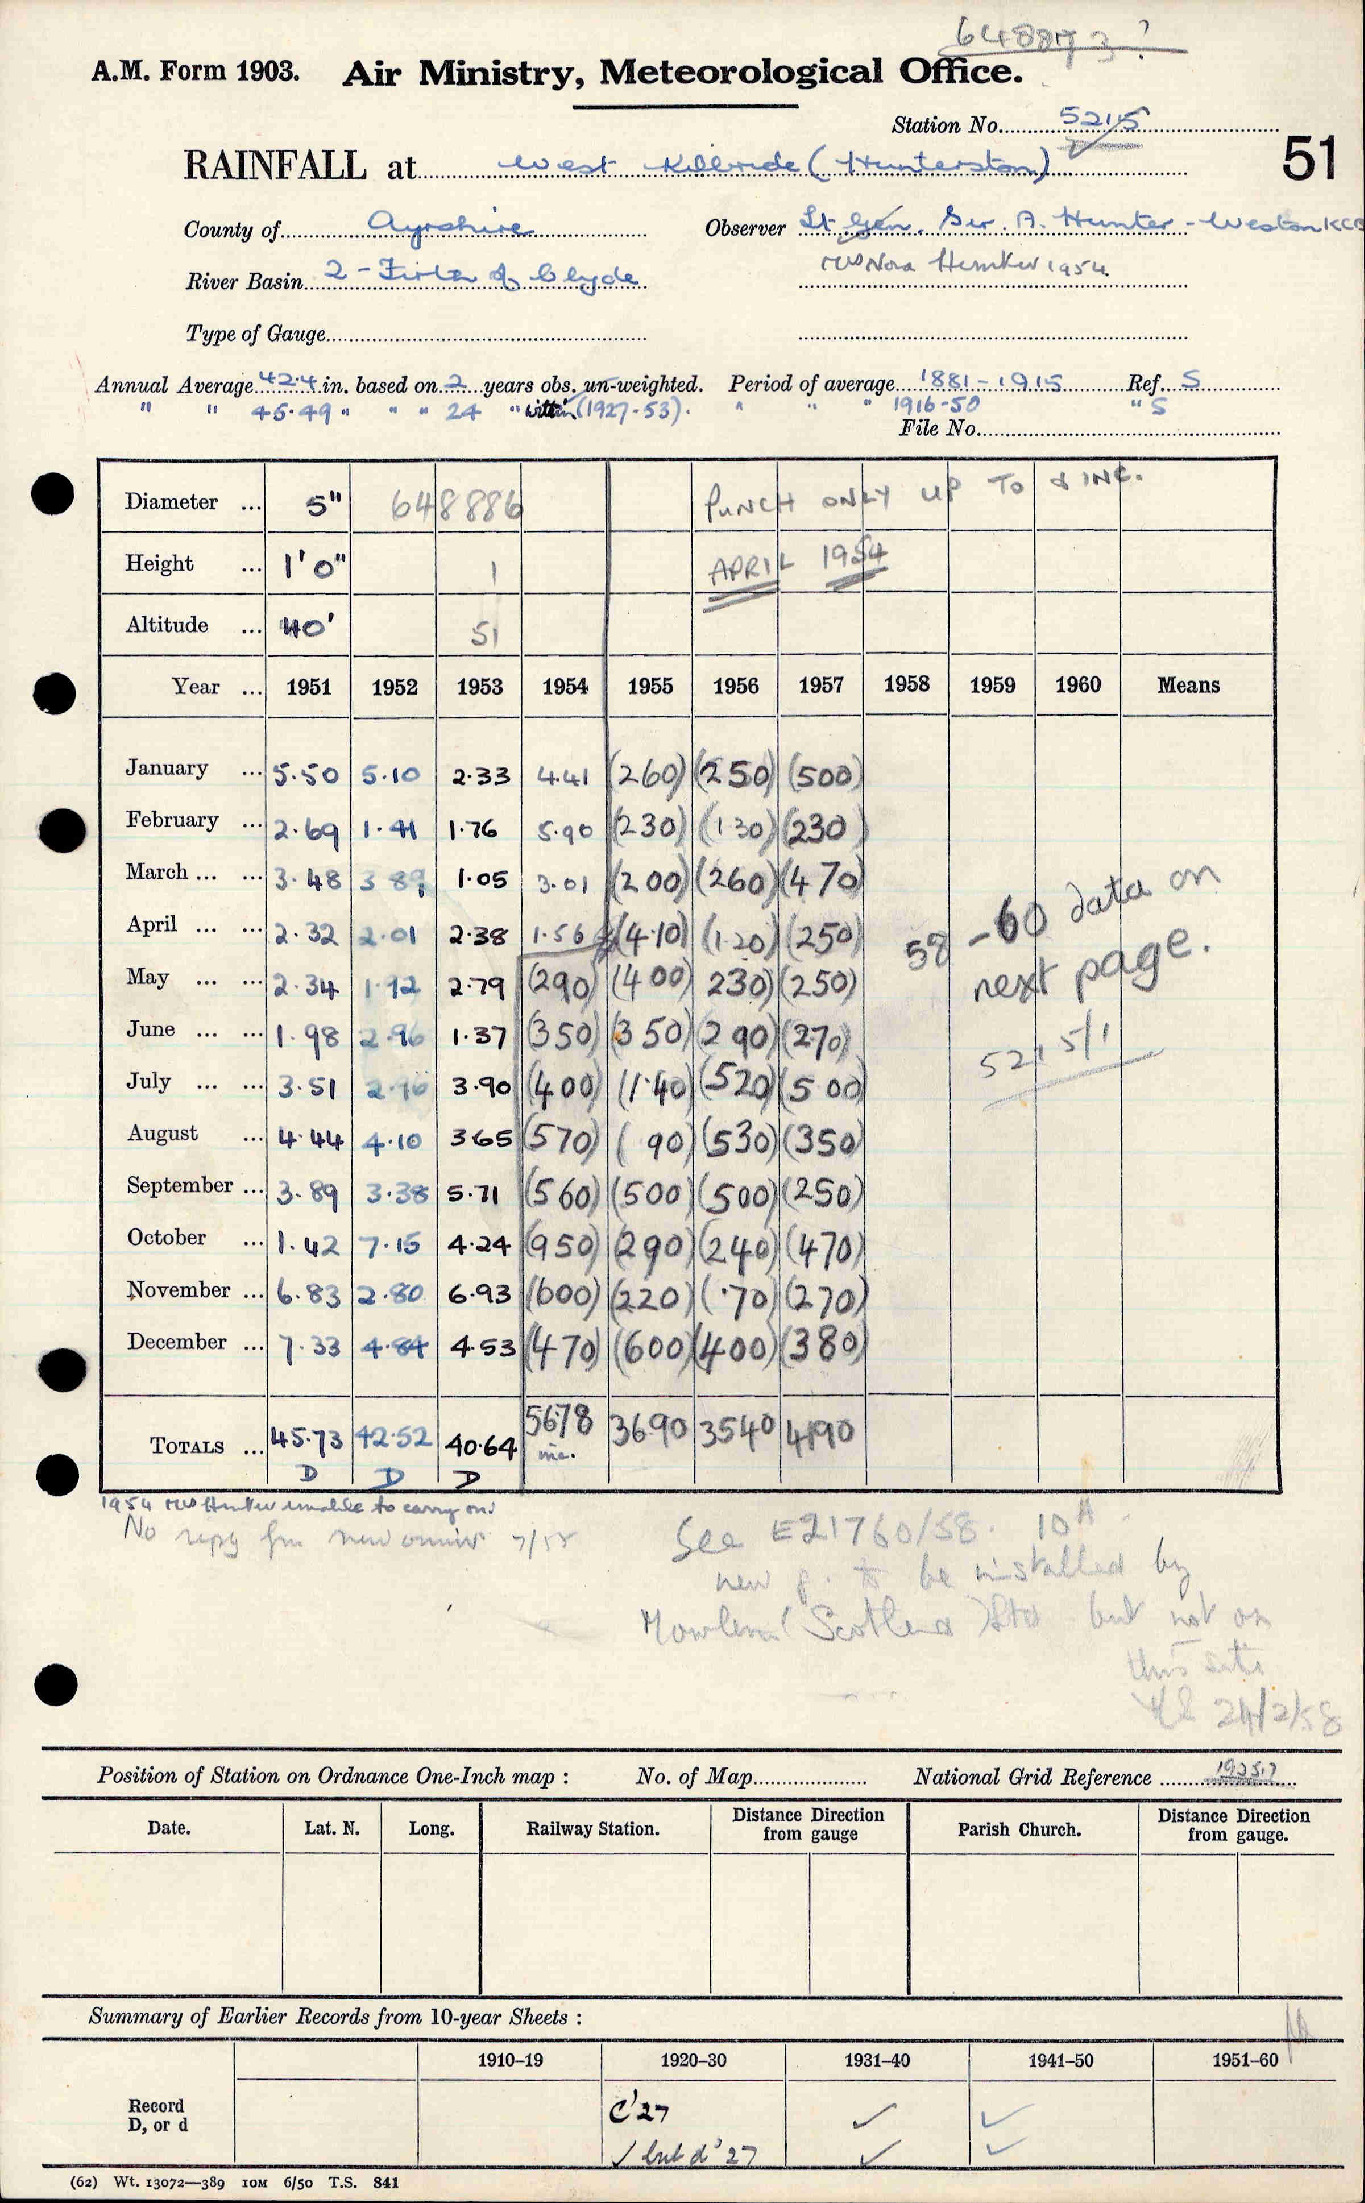 648873?
A.M. Form 1903. Air Ministry, Meteorological Office.
Station No. 5215
51
RAINFALL at West Kilbride (Hunterston)
County of Ayrshire Observer Lt Gen. Sir. A. Hunter-Weston KCB
River Basin 2 - Firth of Clyde Mrs Nora Hunter 1954
Type of Gauge
Annual Average 42.4 in. based on 2 years obs. un-weighted. Period of average 1881-1915 Ref. S
" " 45.49 " " " 24 " within (1927-53). " " " 1916-50 " S
File No.
Diameter ... 5" 648886 PUNCH ONLY UP TO & INC.
Height ... 1'0" 1 APRIL 1954
Altitude ... 40' 51
Year ... 1951 1952 1953 1954 1955 1956 1957 1958 1959 1960 Means
January ... 5.50 5.10 2.33 4.41 (260) (250) (500)
February ... 2.69 1.41 1.76 5.90 (230) (130) (230)
March ... ... 3.48 3.89 1.05 3.01 (200) (260) (470)
April ... ... 2.32 2.01 2.38 1.56 (4.10) (1.20) (250) 58 -60 data on
May ... ... 2.34 1.92 2.79 (290) (400) 230) (250) next page.
June ... ... 1.98 2.96 1.37 (350) (350) (290) (2.70) 5215/1
July ... ... 3.51 2.96 3.90 (400) (1.40) (520) (500)
August ... 4.44 4.10 3.65 (570) ( 90) (530) (350)
September ... 3.89 3.38 5.71 (560) (500) (500) (250)
October ... 1.42 7.15 4.24 (950) (290) (240) (470)
November ... 6.83 2.80 6.93 (600) (220) (.70) (270)
December ... 7.33 4.84 4.53 (470) (600) (400) (380)
TOTALS ... 45.73 42.52 40.64 5678 3690 3540 4190
inc.
D D D
1954 Mrs Hunter unable to carry on.
No reply fm new owner 7/55
See E21760/58. 10A.
new g. to be installed by
Mowlem (Scotland) Ltd but not on
this site
24/2/58
Position of Station on Ordnance One-Inch map : No. of Map National Grid Reference 19.5.7
Date. Lat. N. Long. Railway Station. Distance Direction from gauge Parish Church. Distance Direction from gauge.
Summary of Earlier Records from 10-year Sheets :
1910-19 1920-30 1931-40 1941-50 1951-60
Record C'27 ✓ ✓
D, or d ✓ but d'27 ✓ ✓
(62) Wt. 13072—389 10M 6/50 T.S. 841